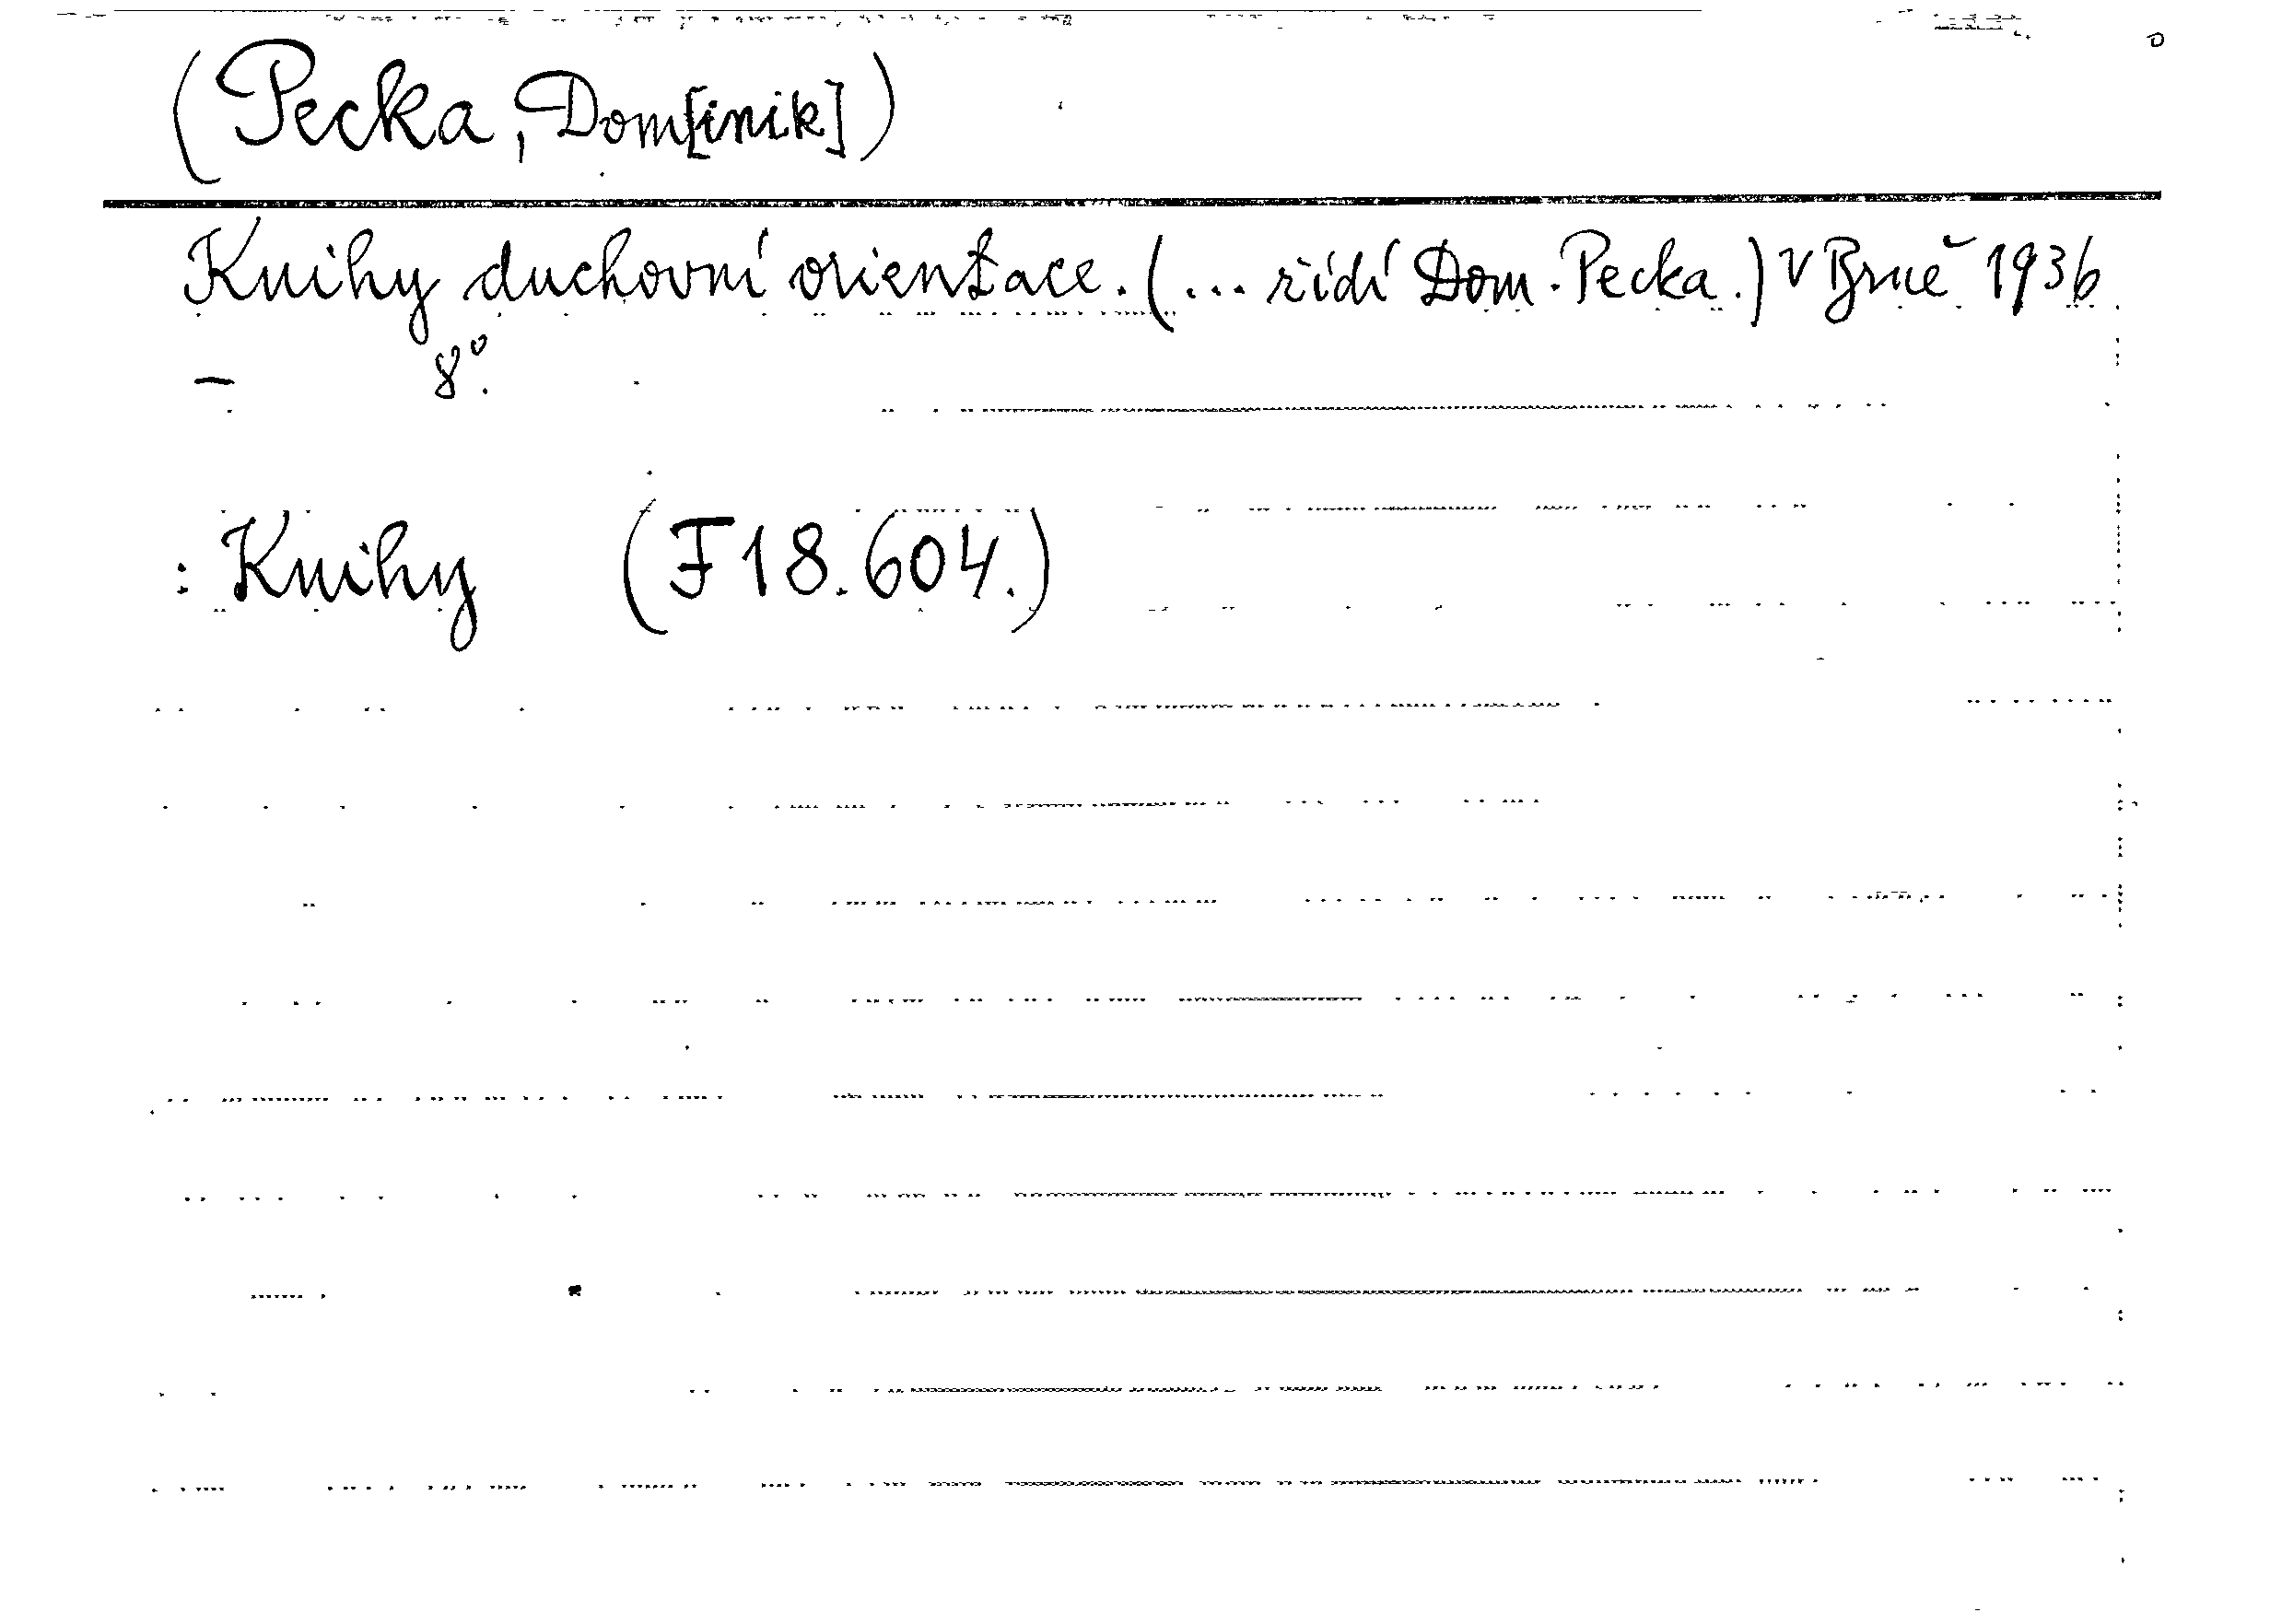 (Pecka, Dom[inik])
Knihy duchovní orientace. (... řídí Dom. Pecka.) V Brně 1936
– 8°.
: Knihy (F 18.604.)